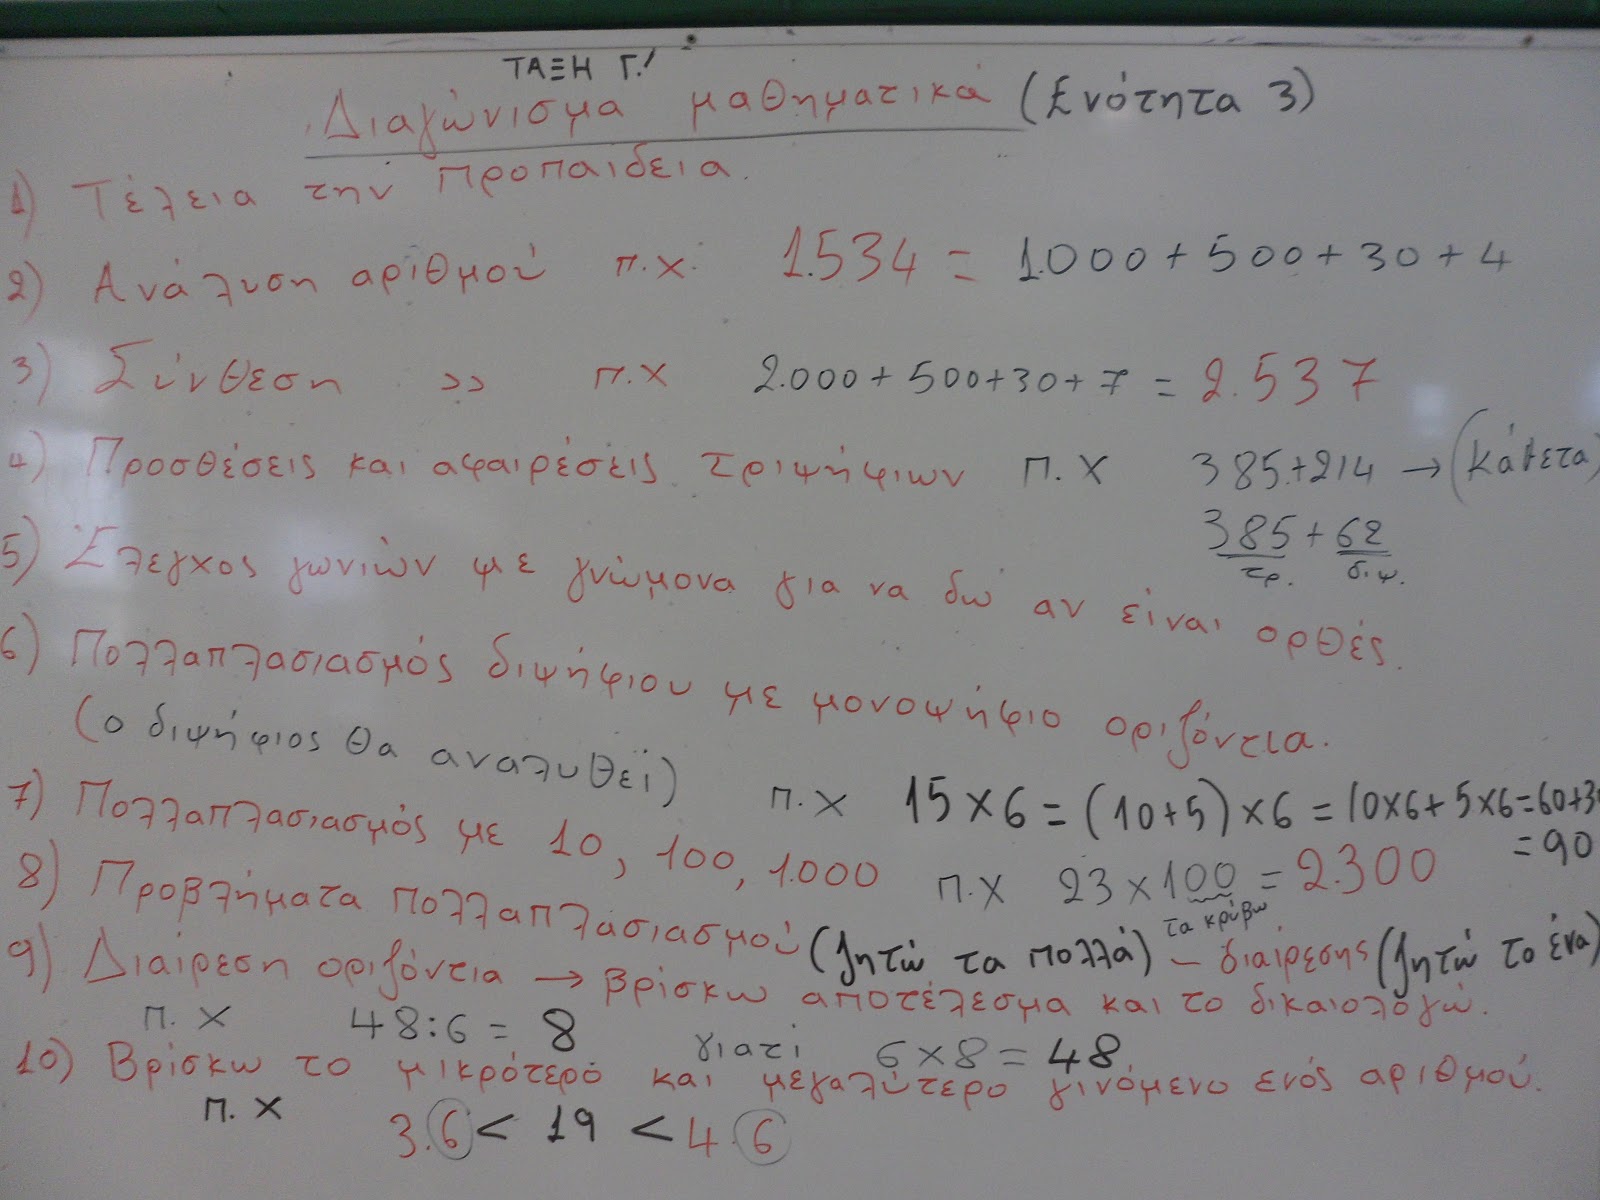 ΤΑΞΗ Γ'
Διαγώνισμα μαθηματικά (Ενότητα 3)
1) Τέλεια την Προπαιδεια.
2) Ανάλυση αριθμού π.χ. 1.534 = 1.000 + 500 + 30 + 4
3) Σύνθεση >> π.χ 2.000 + 500 + 30 + 7 = 2.537
4) Προσθέσεις και αφαιρέσεις τριψήφιων π.χ 385 + 214 → (κάθετα)
385 + 62
τρ. διψ.
5) Έλεγχος γωνιών με γνώμονα για να δω αν είναι ορθές.
6) Πολλαπλασιασμός διψήφιου με μονοψήφιο οριζόντια.
(ο διψήφιος θα αναλυθεί)
π.χ 15 × 6 = (10 + 5) × 6 = 10×6 + 5×6 = 60+30
= 90
7) Πολλαπλασιασμός με 10, 100, 1.000 π.χ 23 × 100 = 2.300
τα κρύβω
8) Προβλήματα πολλαπλασιασμού (ζητώ τα πολλά) – διαίρεσης (ζητώ το ένα)
9) Διαίρεση οριζόντια → βρίσκω αποτέλεσμα και το δικαιολογώ.
π.χ 48 : 6 = 8 γιατί 6 × 8 = 48
10) Βρίσκω το μικρότερο και μεγαλύτερο γινόμενο ενός αριθμού.
π.χ 3.6 < 19 < 4.6